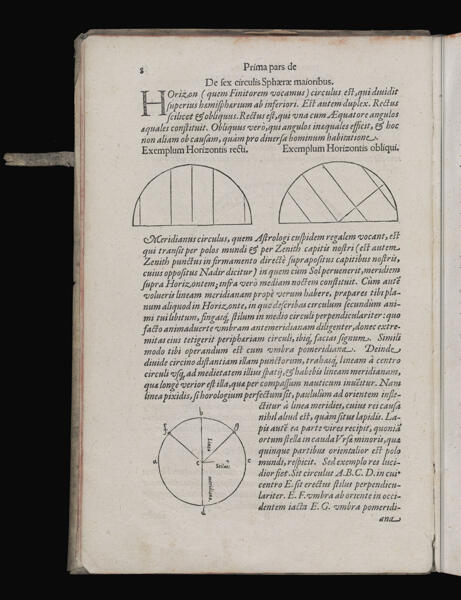 8
Prima pars de
De sex circulis Sphæræ maioribus.
HOrizon (quem Finitorem vocamus) circulus est, qui diuidit
superius hemispharium ab inferiori. Est autem duplex. Rectus
scilicet & obliquus. Rectus est, qui vna cum Æquatore angulos
aequales constituit. Obliquus vero, qui angulos inaequales efficit, & hoc
non aliam ob causam, quàm pro diuersa hominum habitatione.
Exemplum Horizontis recti.
Exemplum Horizontis obliqui.
Meridianus circulus, quem Astrologi cuspidem regalem vocant, est
qui transit per polos mundi & per Zenith capitis nostri (est autem
Zenith punctus in firmamento directè suprapositus capitibus nostris,
cuius oppositus Nadir dicitur) in quem cum Sol peruenerit, meridiem
supra Horizontem; infra verò mediam noctem constituit. Cùm autē
volueris lineam meridianam propè verum habere, præpares tibi pla-
num aliquod in Horizonte, in quo describas circulum secundùm ani-
mi tui libitum, fingasq́; stilum in medio circuli perpendiculariter: quo
facto animaduerte vmbram antemeridianam diligenter, donec extre-
mitas eius tetigerit periphæriam circuli, ibiq́; facias signum. Simili
modo tibi operandum est cum vmbra pomeridiana. Deinde
diuide circino distantiam illam punctorum, trahasq́; lineam à centro
circuli vsq́; ad medietatem illius spatij, & habebis lineam meridianam,
qua longè verior est illa, quæ per compassum nauticum inuētur. Nam
linea pixidis, si horologium perfectum sit, paululùm ad orientem infle-
ctitur à linea meridiei, cuius rei causa
nihil aliud est, quàm situs lapidis. La-
pis autē ea parte vires recipit, quoniā
ortum stella in cauda Vrsæ minoris, quæ
quinque partibus orientalior est polo
mundi, respicit. Sed exemplo res luci-
dior fiet. Sit circulus A.B.C.D. in cuius
centro E. sit erectus stilus perpendicu-
lariter. E.F. vmbra ab oriente in occi-
dentem iacta E.G. vmbra pomeridi-
ana
b
a
c
d
e
Linea
Stilus
meridiana